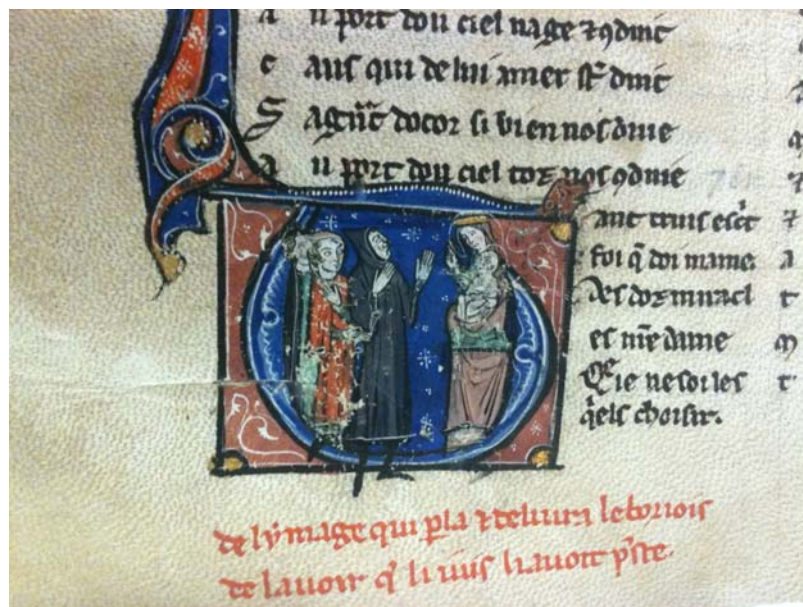 A u port dou ciel nage ⁊ ꝯduit
C aus qui de lui amer st̃ duit
S a gñt docor si bien nos duie
A u port dou ciel toz nos ꝯduie
Tant truis escͥt
foi q̃ doi mame
des doz miracl
es nr̃e dame
Que ne soi les
q̃els choisir.
de lymage qui ꝑla ⁊ deliura le boriois
de lauoir qͥ li iuis li auoit p̃ste.